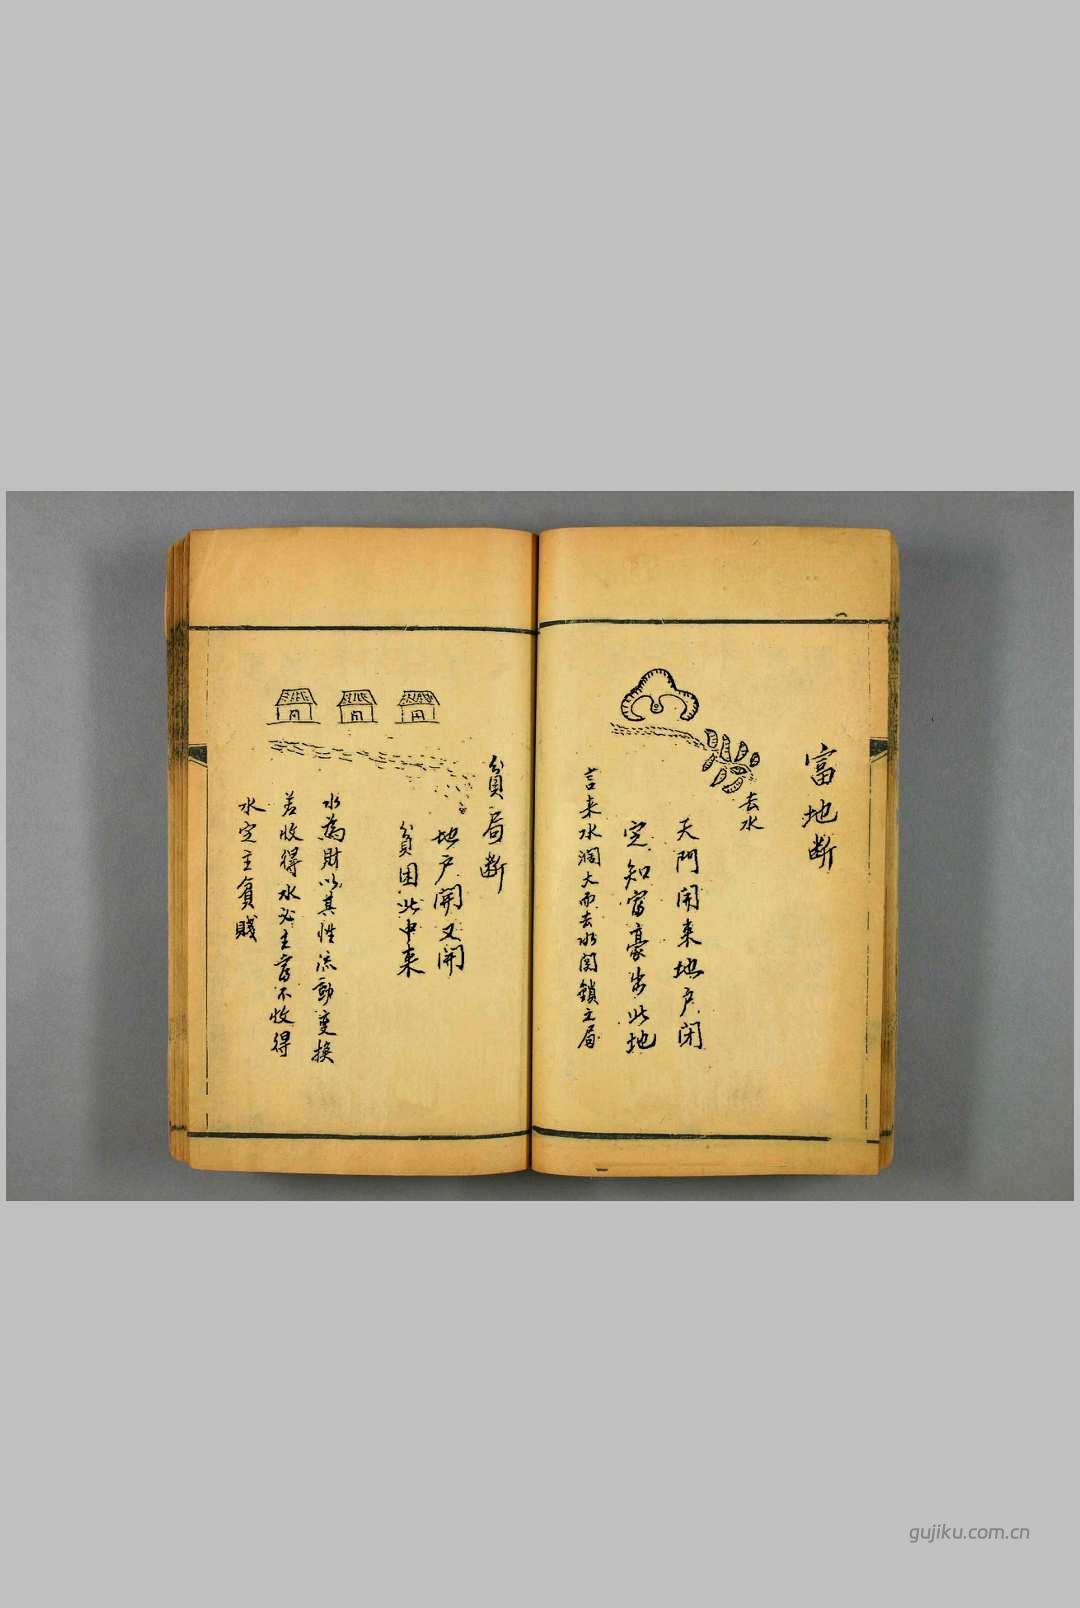 富地断
去水
天門開来地户闭
定知富豪出此地
言来水濶大而去水関鎖之局
貧局断
地户開又開
貧困此中来
水為財以其性流動变换
若收得水必主富不收得
水定主貧賤
gujiku.com.cn